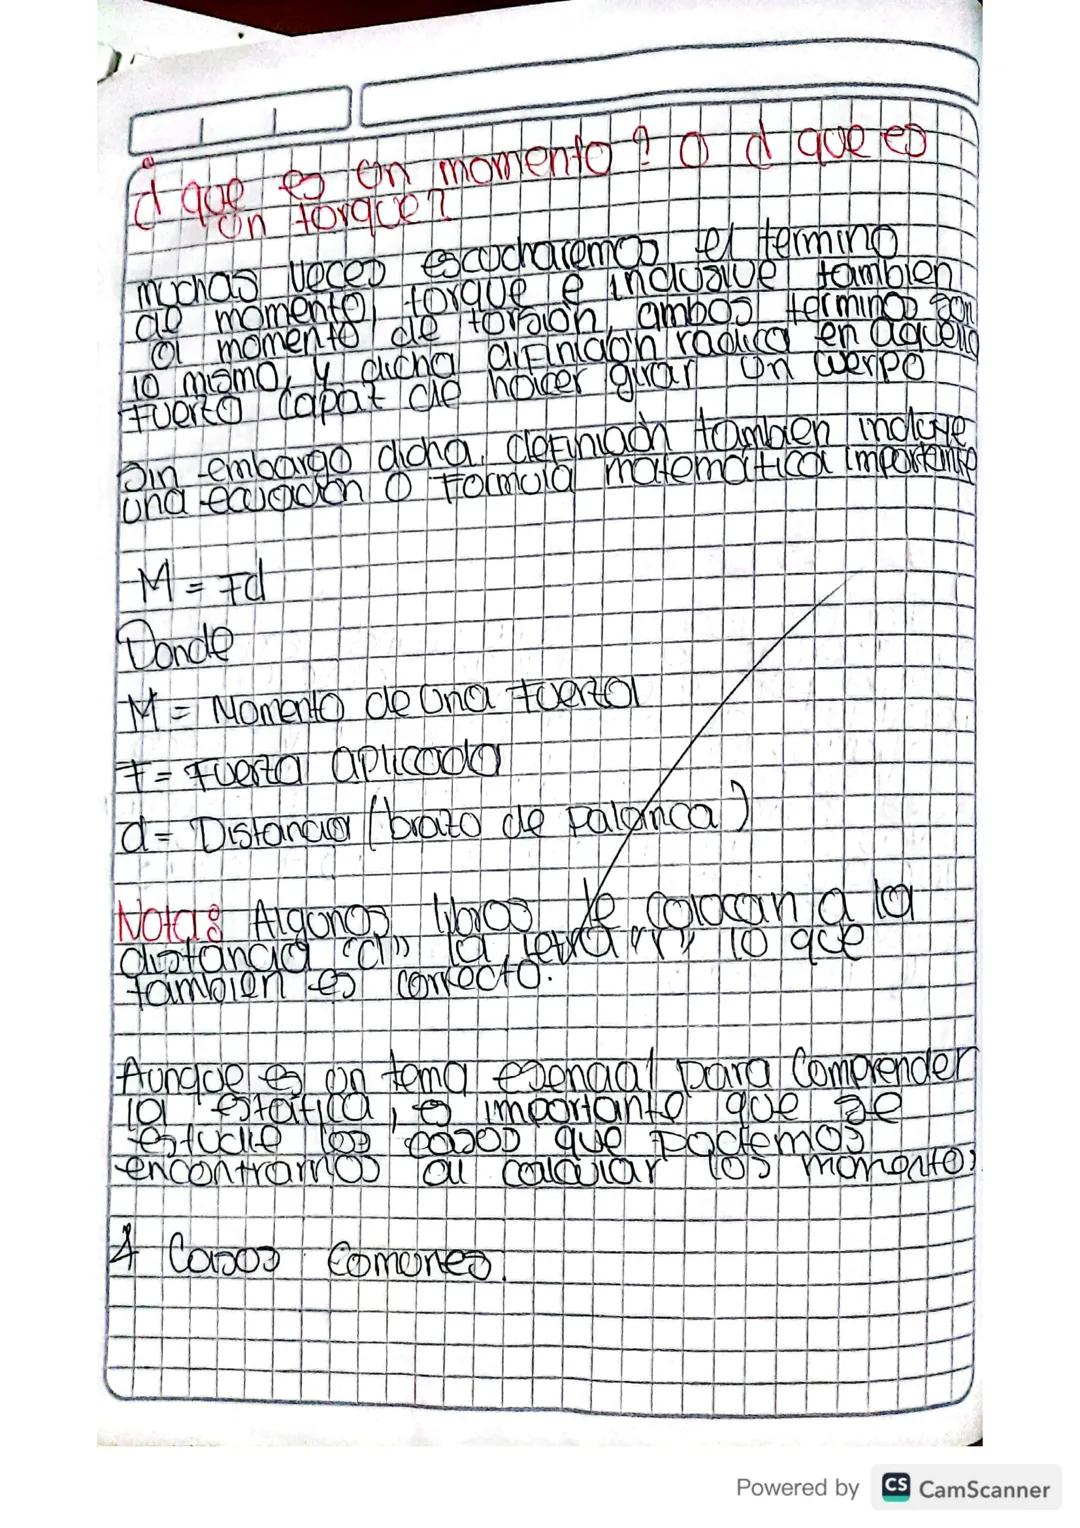 ¿que es un momento? O ¿que es
un torque?
muchas veces escucharemos el termino
de momento, torque e inclusive tambien
al momento de torsión, ambos terminos son
lo mismo, y dicha difinición radica en aquella
fuerza capaz de hacer girar un cuerpo
Sin embargo dicha definición tambien incluye
una ecuación o formula matemática importante
M = Fd
Donde
M = Momento de una Fuerza
F = Fuerza aplicada
d = Distancia (brazo de palanca)
Nota: Algunos libros le colocan a la
distancia "d" la letra "r" lo que
tambien es correcto.
Aunque es un tema esencial para Comprender
la estática, es importante que se
estudie los casos que podemos
encontrarnos al calcular los momentos
4 Casos Comunes.
Powered by CS CamScanner